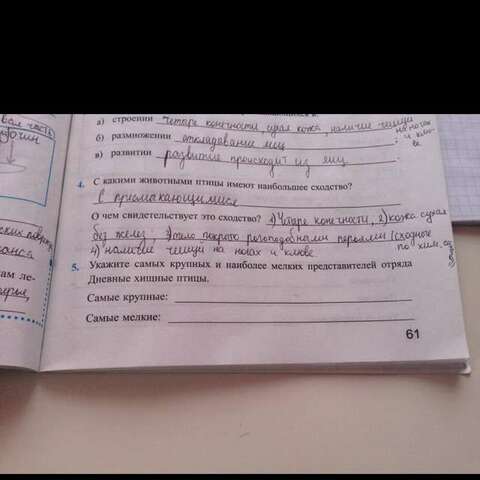 вая часть
а) строении четыре конечности, сухая кожа, наличие чешуи на ногах и клюве
б) размножении откладование яиц ;
в) развитии развитие происходит из яиц .
4. С какими животными птицы имеют наибольшее сходство?
с пресмакающимися
О чем свидетельствует это сходство? 1) Четыре конечности, 2) кожа сухая
без желез, 3) тело покрыто рогоподобными перьями (сходные по хим.
4) наличие чешуи на ногах и клюве
5. Укажите самых крупных и наиболее мелких представителей отряда
Дневные хищные птицы.
Самые крупные:
Самые мелкие:
ам ле-
61